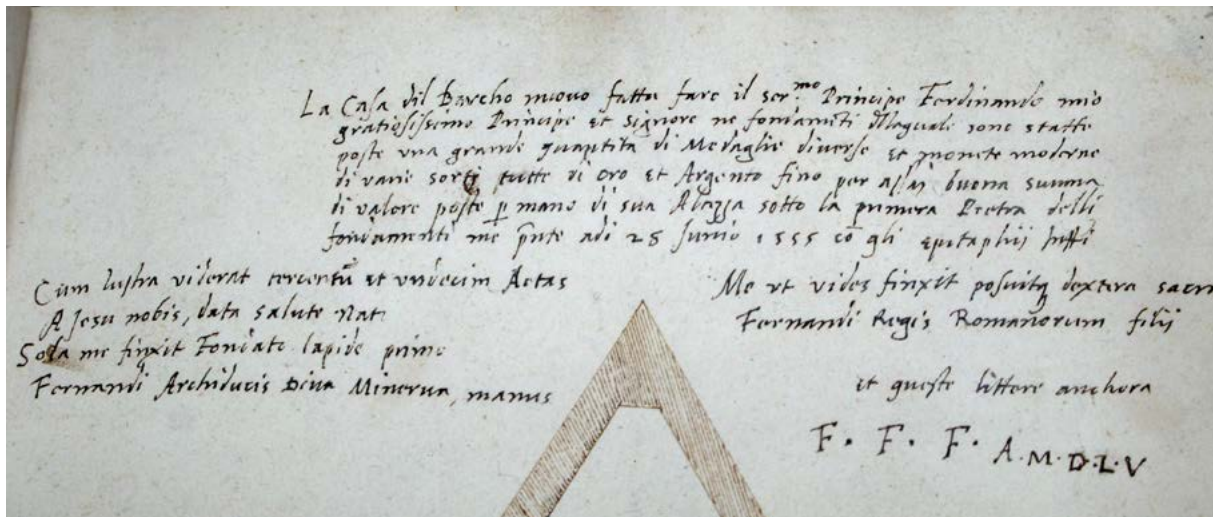 La Casa dil Barcho nuovo fatta fare il ser.mo Principe Ferdinando mio
gratiosissimo Principe et signore ne fondamēti Nelquale sono statte
poste una grande quantita di Medaglie diverse et monete moderne
di varie sorti tutte di oro et Argento fino per assai buona summa
di valore poste p mano di sua Altezza sotto la primera Pietra delli
fondamenti me pñte adi 28 Junio 1555 cō gli epitaphii
Cum lustra viderat tercentū et undecim Aetas
A Jesu nobis, data salute Nati
Sola me finxit Fondato lapide primo
Fernandi Archiducis Diva Minerva, manus
Me ut vides finxit posuitq dextera sacra
Fernandi Regis Romanorum filii
et queste littere anchora
F. F. F. A.M.D.L.V